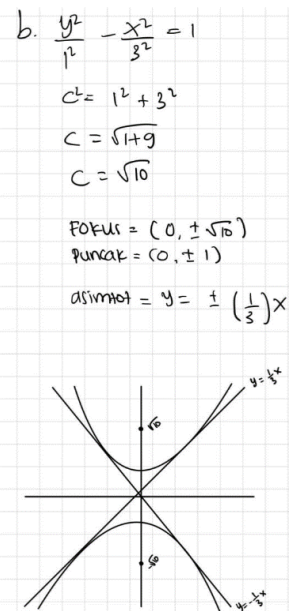 b. y²/1² - x²/3² = 1
c² = 1² + 3²
c = √1+9
c = √10
Fokus = (0, ± √10)
Puncak = (0, ± 1)
asimtot = y = ± (1/3)x
y = 1/3 x
√10
-√10
y = -1/3 x